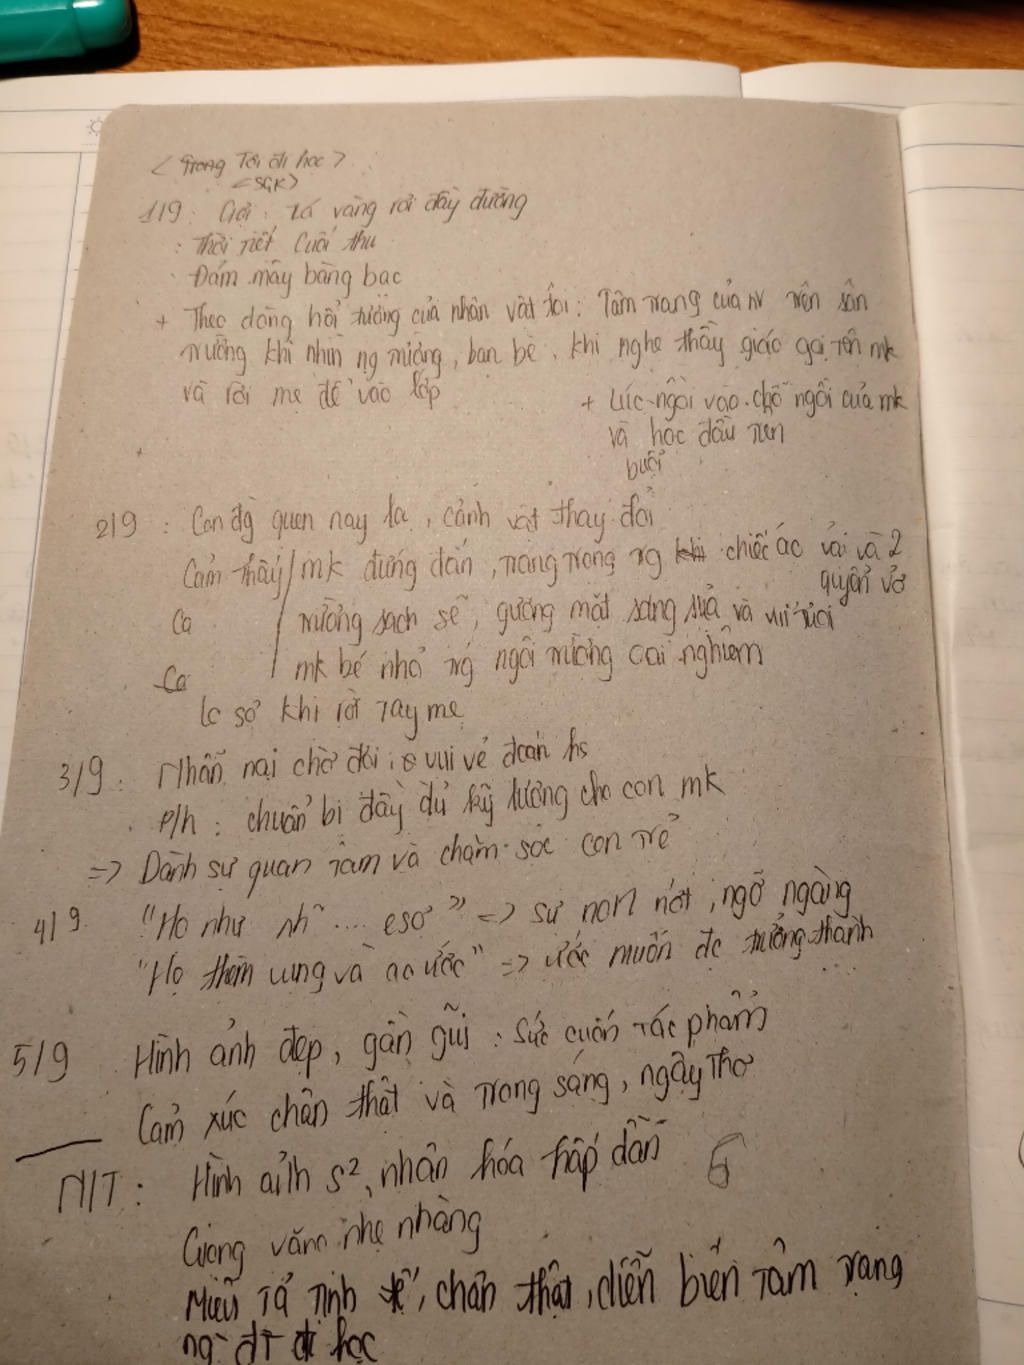 < Trong Tôi đi học >
<SGK>
1/9: Gợi: Lá vàng rơi đầy đường
: Thời tiết cuối thu
Đám mây bàng bạc
+ Theo dòng hồi tưởng của nhân vật tôi: Tâm trạng của nv trên sân
trường khi nhìn ng, bạn bè, khi nghe thầy giáo gọi tên mk
và rời mẹ để vào lớp
+ Lúc ngồi vào chỗ ngồi của mk
và học đầu tiên
buổi
2/9: Con đg quen nay lạ, cảnh vật thay đổi
Cảm thấy / mk đứng đắn, trang trọng trg chiếc áo vải và 2
quyển vở
Ca
trường sạch sẽ, gương mặt sáng sủa và vui tươi
mk bé nhỏ trg ngôi trường oai nghiêm
Ca
lo sợ khi rời tay mẹ
3/9: Nhẫn nại chờ đợi, vui vẻ đoán hs
P/h: chuẩn bị đầy đủ kỹ lưỡng cho con mk
=> Dành sự quan tâm và chăm sóc con trẻ
4/9 "Họ như nh~ .... e sợ" => sự non nớt, ngỡ ngàng
"Họ thèm vụng và ao ước" => ước muốn đc trưởng thành
5/9 Hình ảnh đẹp, gần gũi: Sức cuốn tác phẩm
Cảm xúc chân thật và trong sáng, ngây thơ
N/T: Hình ảnh s², nhân hóa hấp dẫn
Giọng văn nhẹ nhàng
Miêu tả tinh tế, chân thật, diễn biến tâm trạng
ng` đt đi học